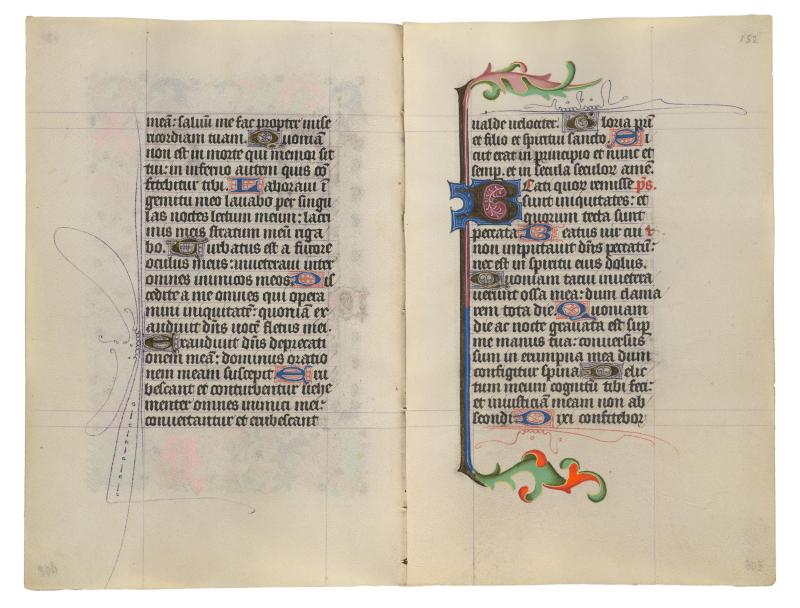 meā: saluū me fac propter mise
ricordiam tuam. Quoniā
non est in morte qui memor sit
tui: in inferno autem quis cō
fitebitur tibi. Laboraui ī
gemitu meo lauabo per singu
las noctes lectum meum: lacri
mis meis stratum meū riga
bo. Turbatus est a furore
oculus meus: inueteraui inter
omnes inimicos meos. Dis
cedite a me omnes qui opera
mini iniquitatē: quoniā ex
audiuit dn̄s uocē fletus mei.
Exaudiuit dn̄s deprecati
onem meā: dominus oratio
nem meam suscepit Eru
bescant et conturbentur uehe
menter omnes inimici mei:
conuertantur et erubescant
152
ualde uelociter. Gloria pr̄i
et filio et spiritui sancto. Si
cut erat in principio et nunc et
semp. et in secula seculor amē.
Beati quor remisse p̄s.
sunt iniquitates: et
quorum tecta sunt
peccata. Beatus uir cui
non imputauit dn̄s peccatū:
nec est in spiritu eius dolus.
Quoniam tacui inuetera
uerunt ossa mea: dum clama
rem tota die. Quoniam
die ac nocte grauata est sup
me manus tua: conuersus
sum in erumpna mea dum
configitur spina. Delic
tum meum cognitū tibi feci:
et iniusticiā meam non ab
scondi. Dixi confitebor